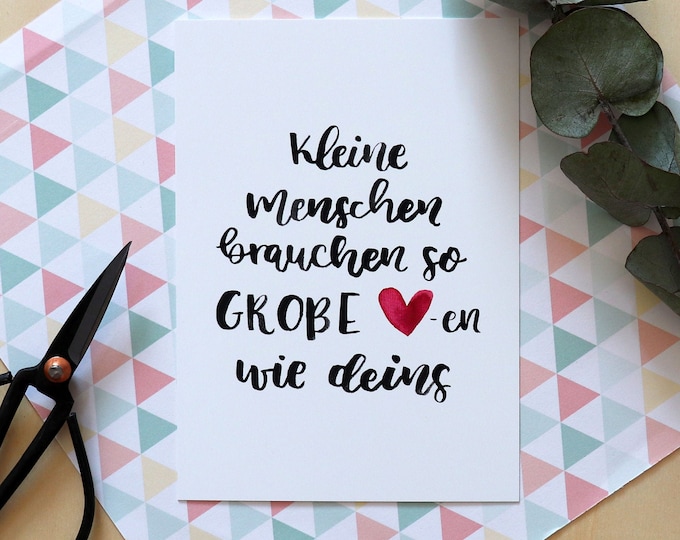 Kleine
menschen
brauchen so
GROßE ♥-en
wie deins